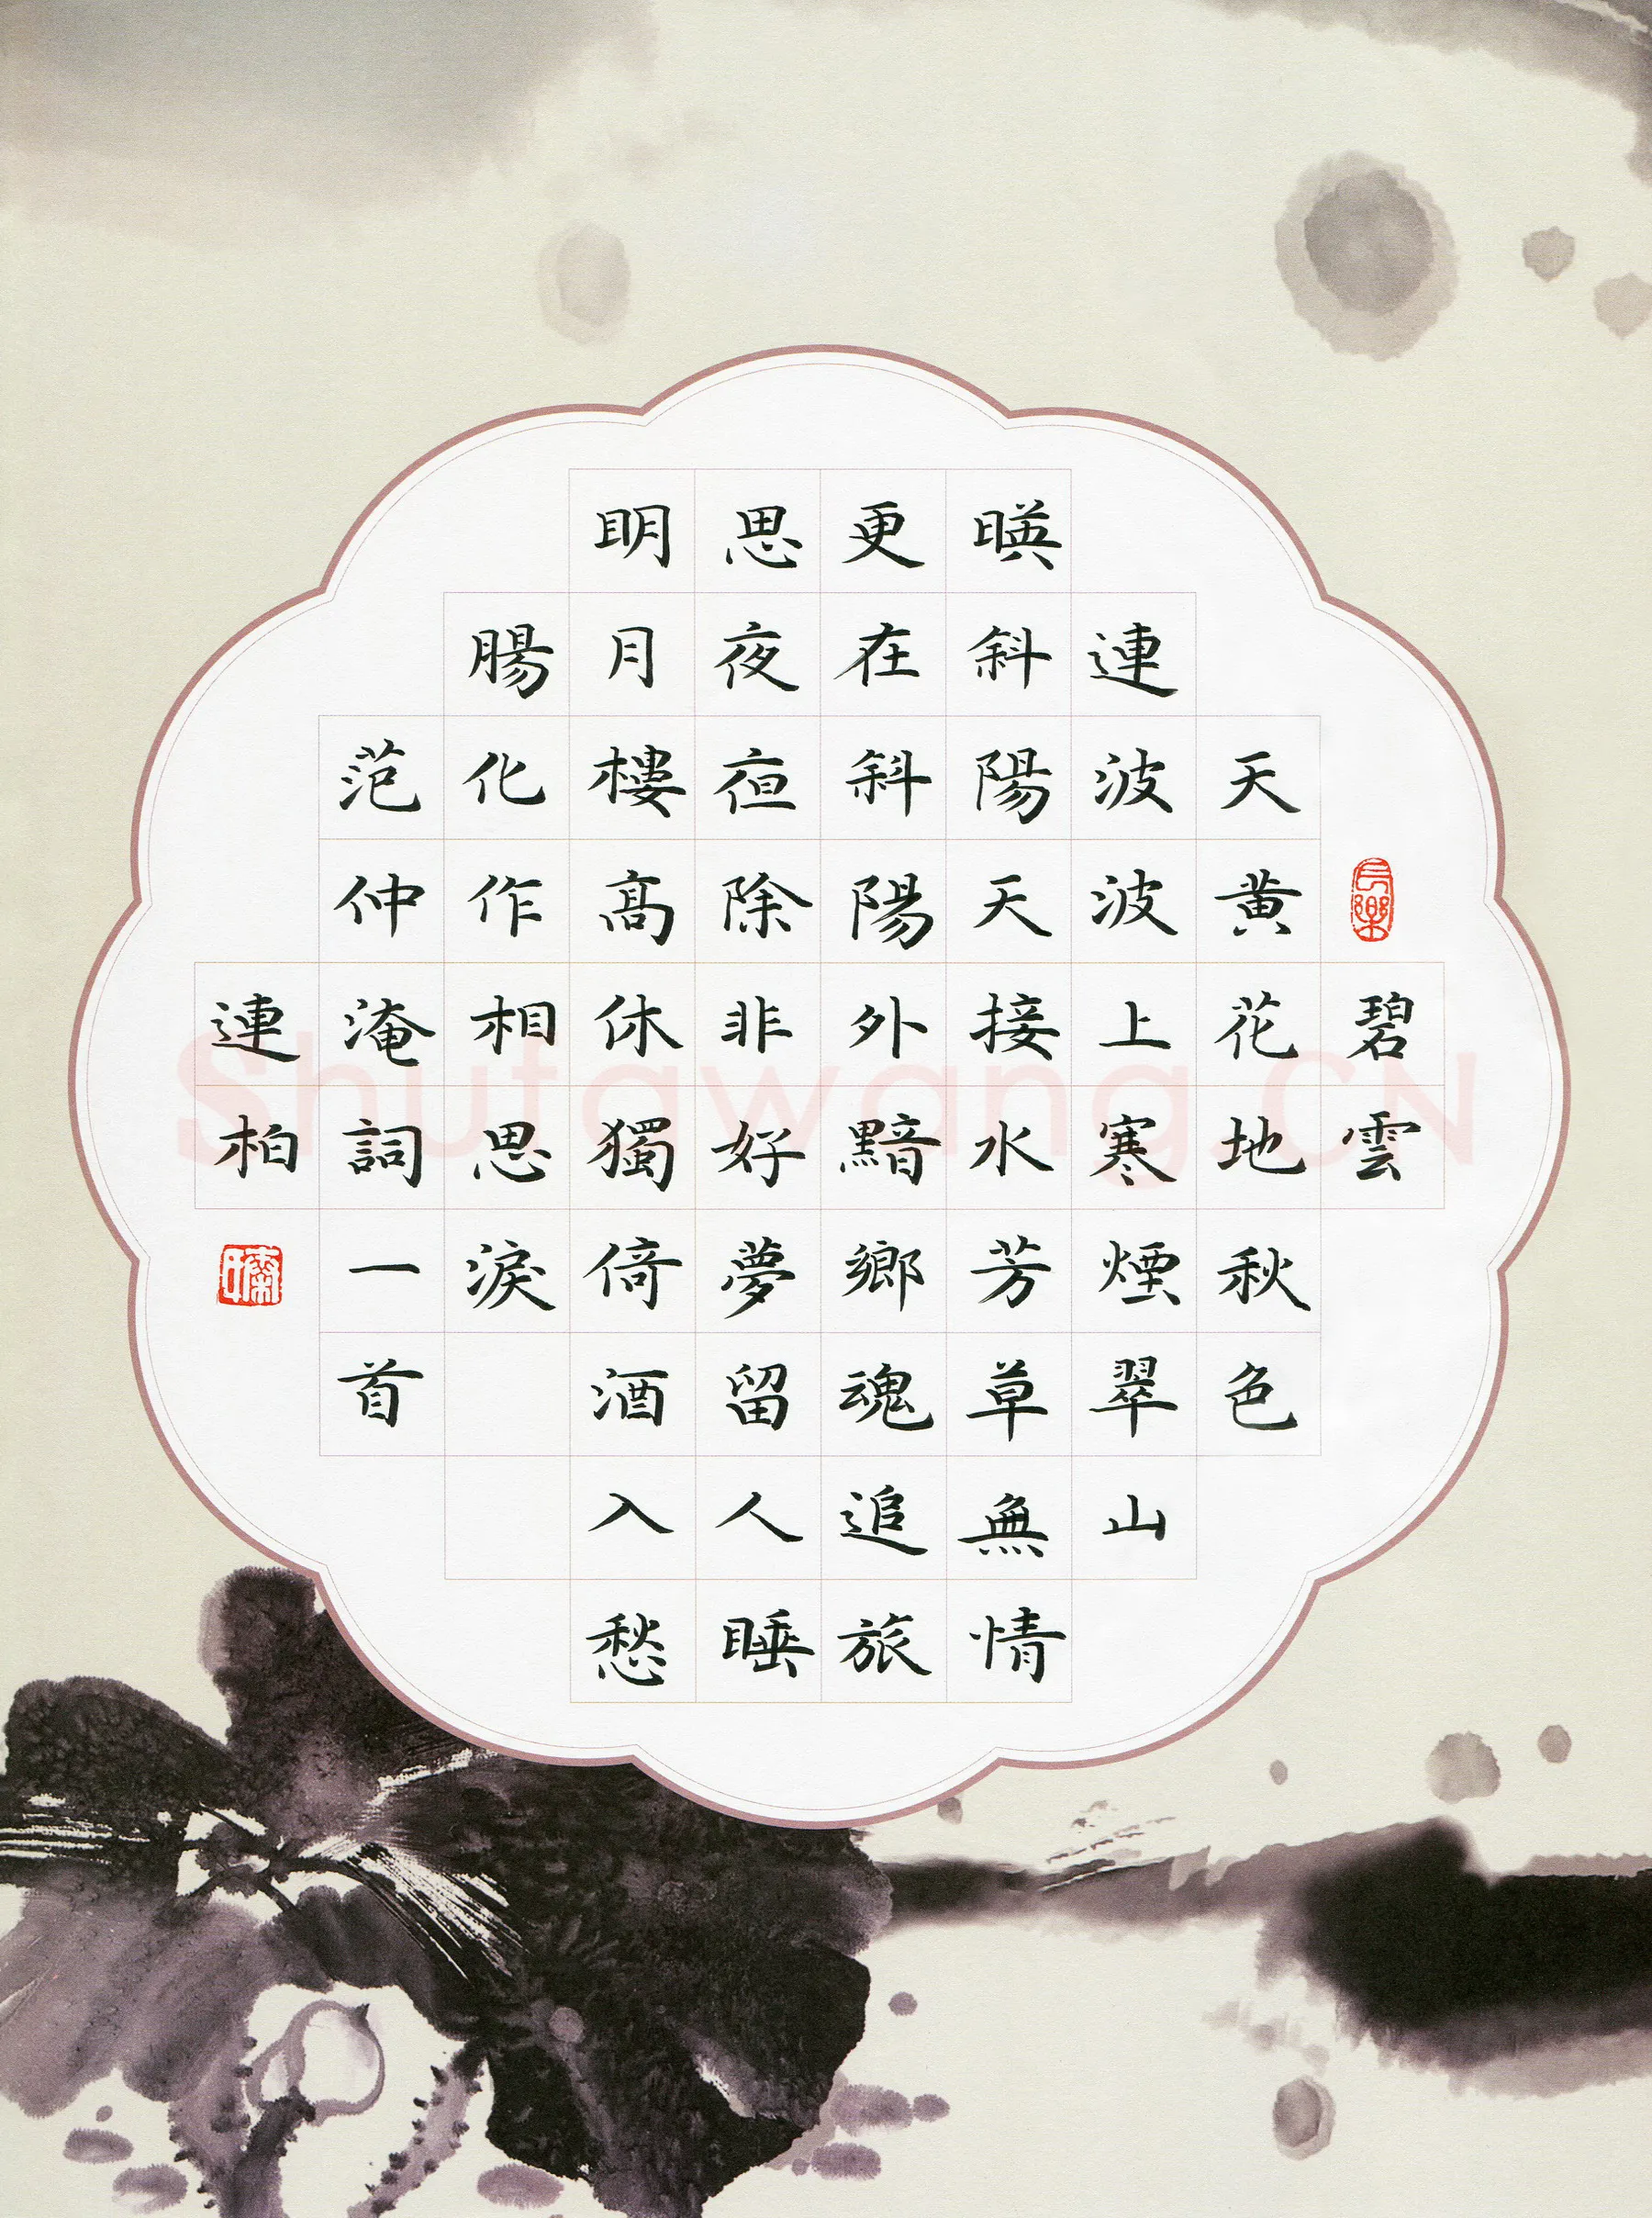 碧雲
天黄花地秋色
連波波上寒煙翠山
暎斜陽天接水芳草無情
更在斜陽外黯鄉魂追旅
思夜亱除非好夢留人睡
眀月樓髙休獨倚酒入愁
腸化作相思淚
范仲淹詞一首
連柏
長樂
Shufawang.CN